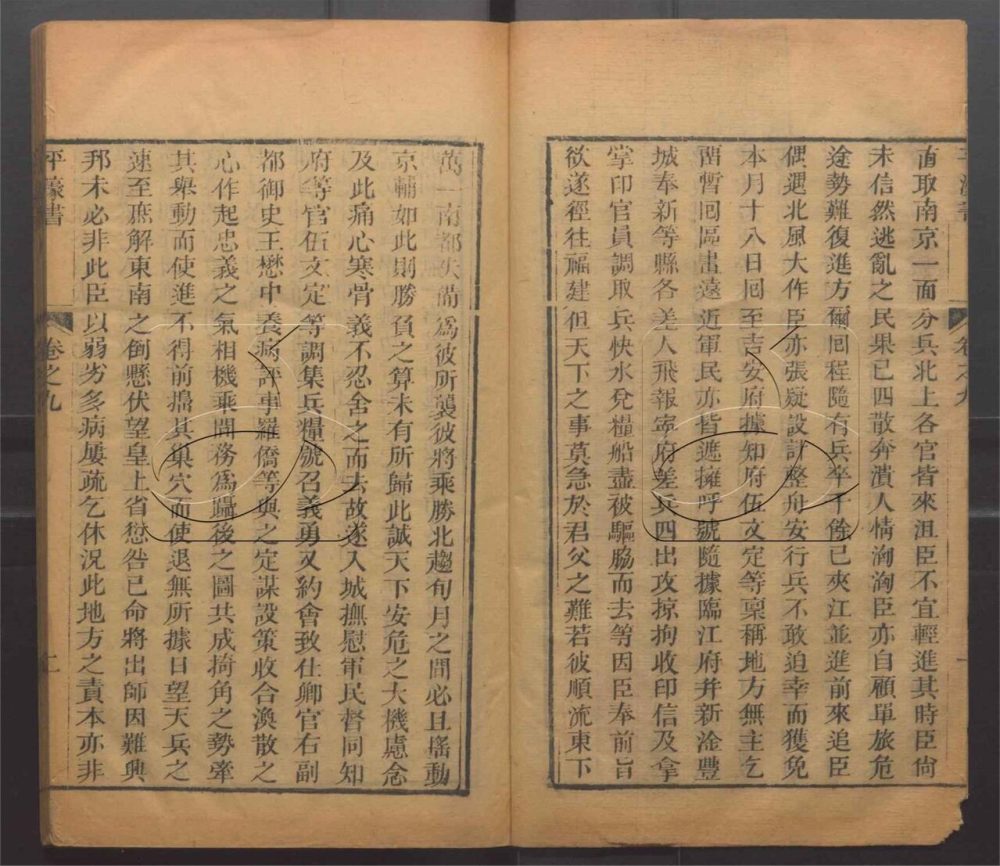 直取南京一面分兵北上各官皆來沮臣不宜輕進其時臣尙
未信然逃亂之民果已四散奔潰人情洶洶臣亦自顧單旅危
途勢難復進方爾囘程隨有兵卒千餘已夾江並進前來追臣
偶遇北風大作臣亦張疑設計整舟安行兵不敢迫幸而獲免
本月十八日囘至吉安府據知府伍文定等稟稱地方無主乞
留暫囘區畫遠近軍民亦皆遮擁呼號隨據臨江府幷新淦豐
城奉新等縣各差人飛報寧府差兵四出攻掠拘收印信及拿
掌印官員調取兵快水兌糧船盡被驅脇而去等因臣奉前旨
欲遂徑往福建但天下之事莫急於君父之難若彼順流東下
萬一南都失備爲彼所襲彼將乘勝北趨旬月之間必且搖動
京輔如此則勝負之算未有所歸此誠天下安危之大機慮念
及此痛心寒骨義不忍舍之而去故遂入城撫慰軍民督同知
府等官伍文定等調集兵糧號召義勇又約會致仕鄉官右副
都御史王懋中養病評事羅僑等與之定謀設策收合渙散之
心作起忠義之氣相機乘間務爲躡後之圖共成掎角之勢牽
其舉動而使進不得前搗其巢穴而使退無所據日望天兵之
速至庶解東南之倒懸伏望皇上省愆咎已命將出師因難興
邦未必非此臣以弱劣多病屢疏乞休况此地方之責本亦非
平濠書 卷之九 二